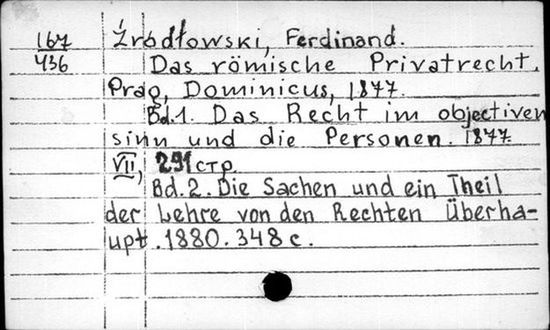 167 Źródłowski, Ferdinand.
436 Das römische Privatrecht.
Prag, Dominicus, 1877.
Bd.1. Das Recht im objectiven
sinn und die Personen. 1877.
VII, 291 стр.
Bd.2. Die Sachen und ein Theil
der Lehre von den Rechten Überha-
upt. 1880. 348 с.